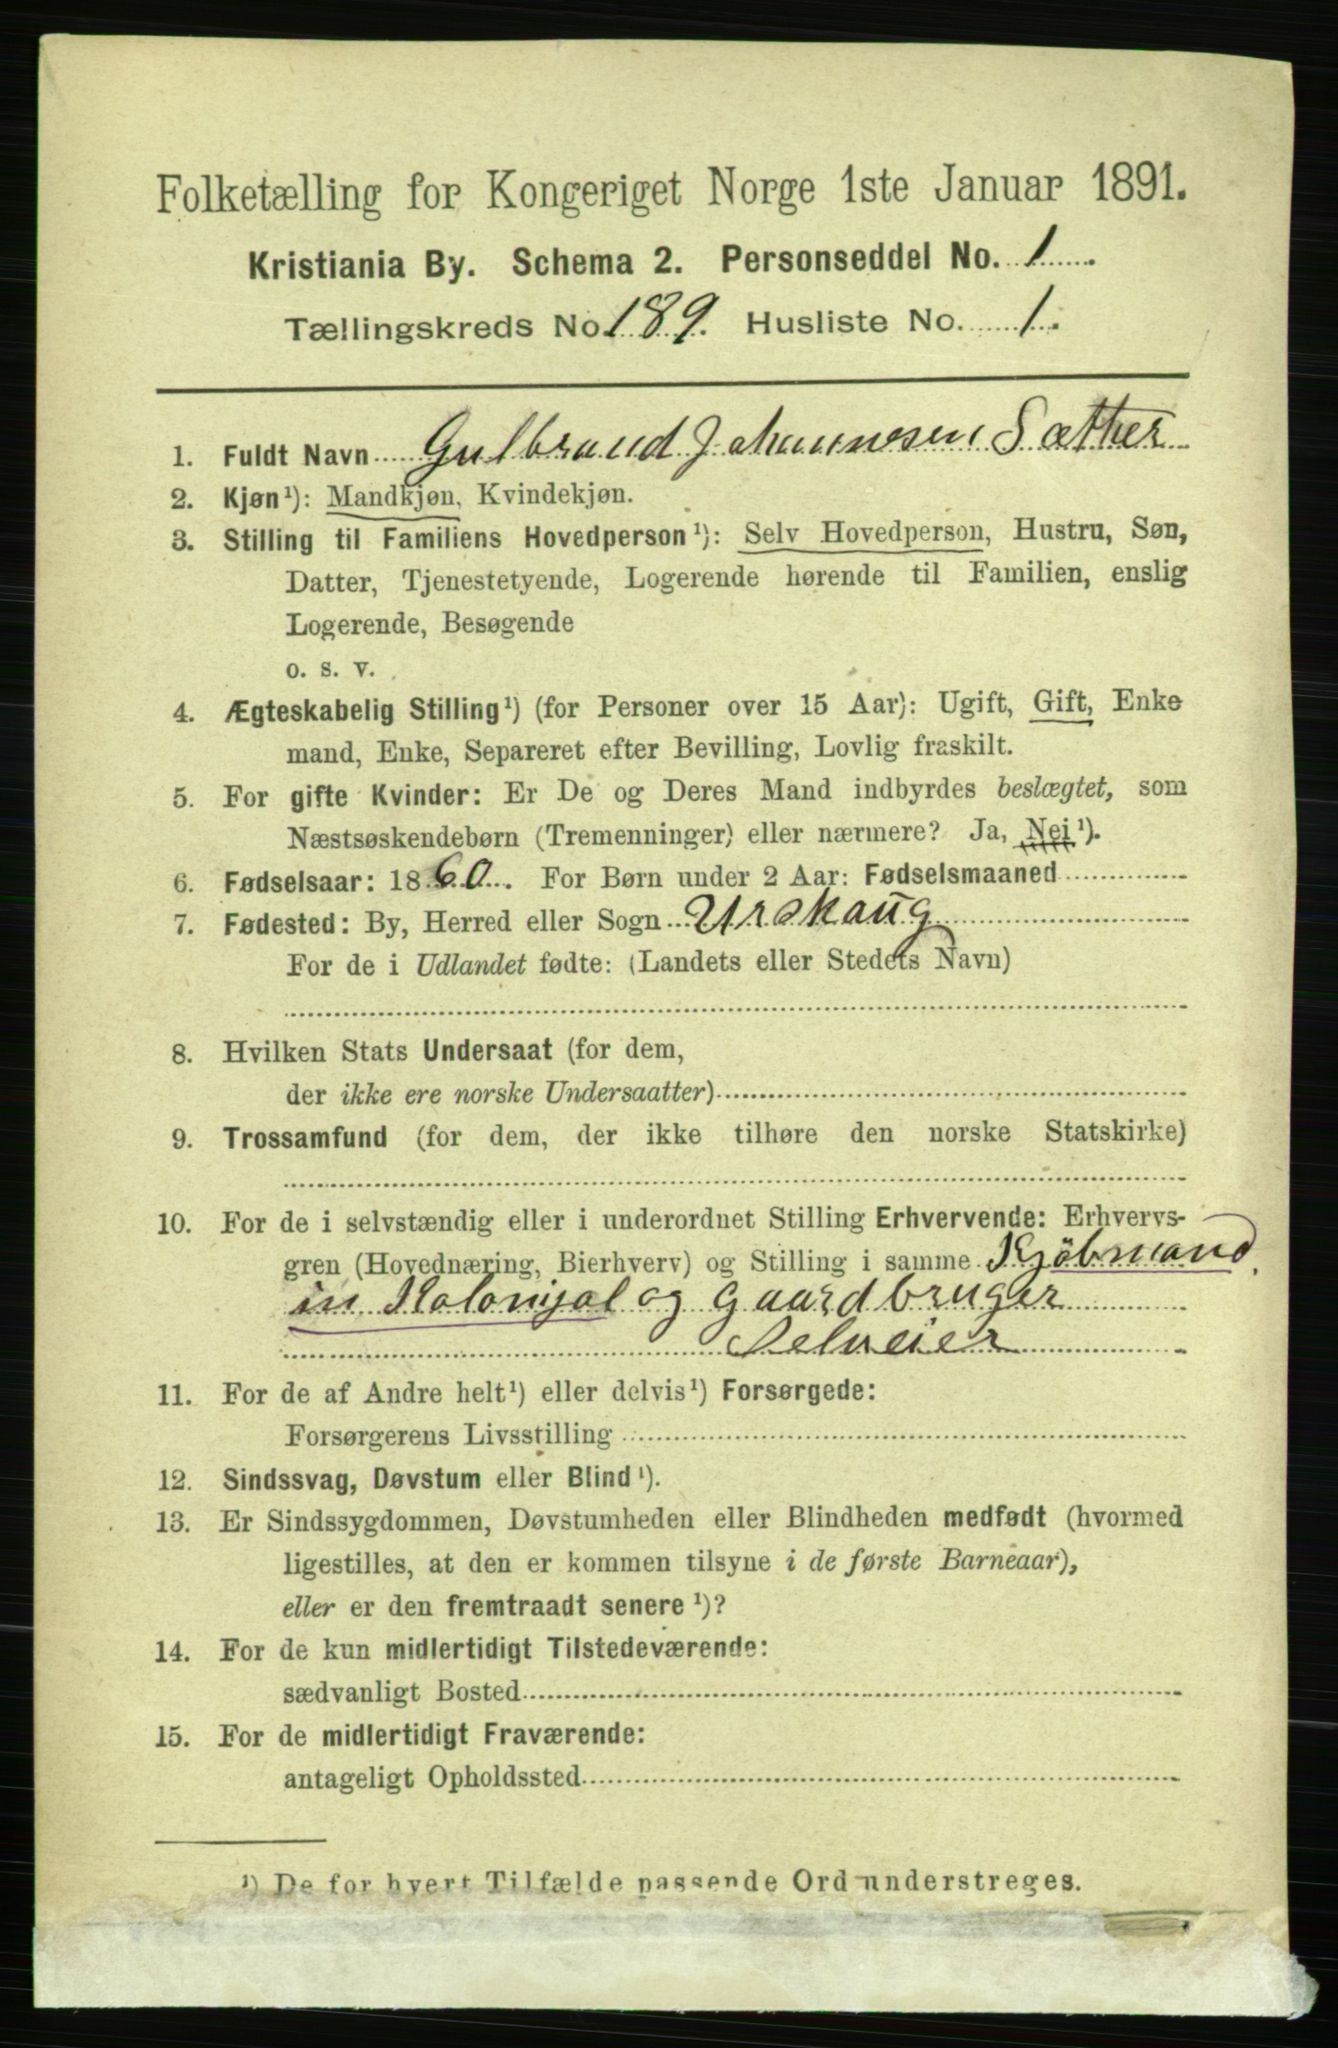 Folketælling for Kongeriget Norge 1ste Januar 1891.
Kristiania By. Schema 2. Personseddel No. 1
Tællingskreds No. 189. Husliste No. 1.
1. Fuldt Navn Gulbrand Johannesen Sæther
2. Kjøn¹): Mandkjøn, Kvindekjøn.
3. Stilling til Familiens Hovedperson¹): Selv Hovedperson, Hustru, Søn,
Datter, Tjenestetyende, Logerende hørende til Familien, enslig
Logerende, Besøgende
o. s. v.
4. Ægteskabelig Stilling¹) (for Personer over 15 Aar): Ugift, Gift, Enke
mand, Enke, Separeret efter Bevilling, Lovlig fraskilt.
5. For gifte Kvinder: Er De og Deres Mand indbyrdes beslægtet, som
Næstsøskendebørn (Tremenninger) eller nærmere? Ja, Nei¹).
6. Fødselsaar: 1860. For Børn under 2 Aar: Fødselsmaaned
7. Fødested: By, Herred eller Sogn Urskaug
For de i Udlandet fødte: (Landets eller Stedets Navn)
8. Hvilken Stats Undersaat (for dem,
der ikke ere norske Undersaatter)
9. Trossamfund (for dem, der ikke tilhøre den norske Statskirke)
10. For de i selvstændig eller i underordnet Stilling Erhvervende: Erhvervs-
gren (Hovednæring, Bierhverv) og Stilling i samme Kjöbmand
in Kolonjal og Gaardbruger
Selveier
11. For de af Andre helt¹) eller delvis¹) Forsørgede:
Forsørgerens Livsstilling
12. Sindssvag, Døvstum eller Blind¹).
13. Er Sindssygdommen, Døvstumheden eller Blindheden medfødt (hvormed
ligestilles, at den er kommen tilsyne i de første Barneaar),
eller er den fremtraadt senere¹)?
14. For de kun midlertidigt Tilstedeværende:
sædvanligt Bosted
15. For de midlertidigt Fraværende:
antageligt Opholdssted
¹) De for hvert Tilfælde passende Ord understreges.